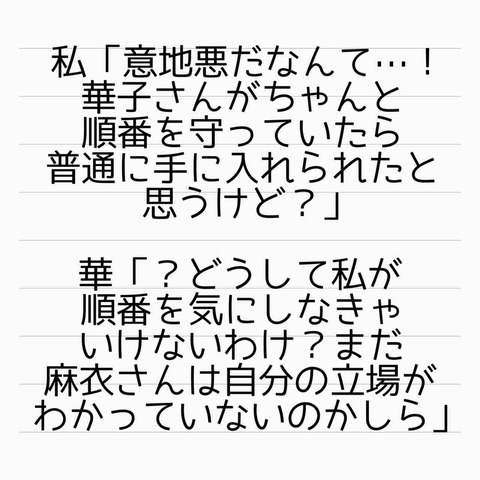 私「意地悪だなんて…！
華子さんがちゃんと
順番を守っていたら
普通に手に入れられたと
思うけど？」
華「？どうして私が
順番を気にしなきゃ
いけないわけ？まだ
麻衣さんは自分の立場が
わかっていないのかしら」